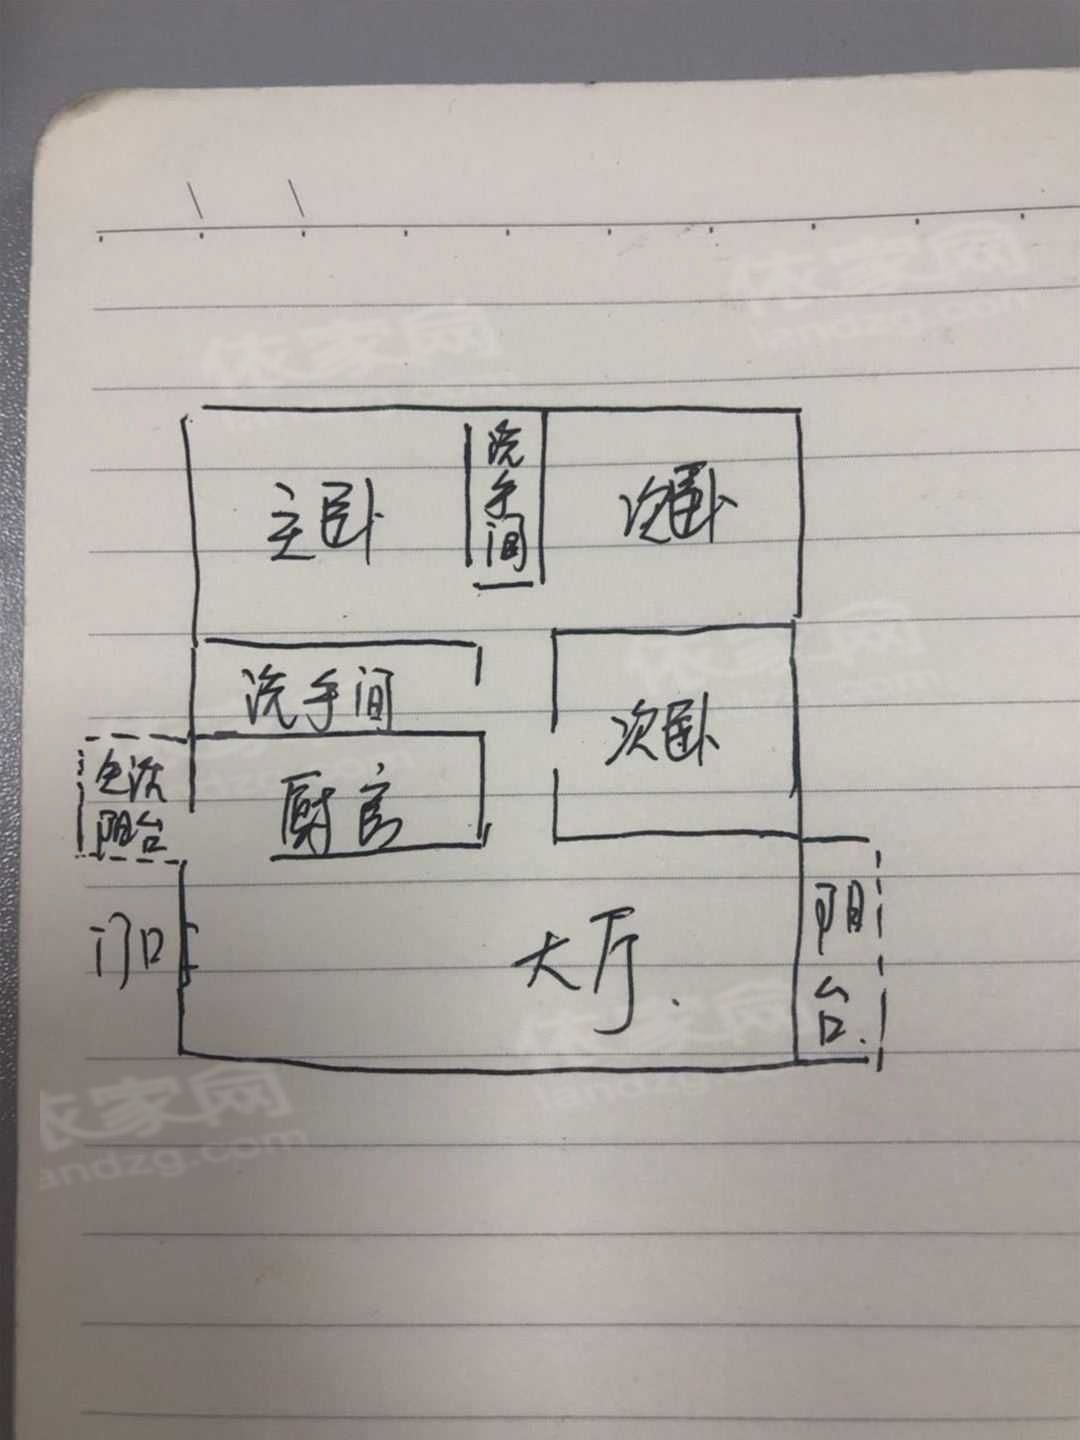 依家网
landzg.com
依家网
主卧
洗手间
次卧
依家网
洗手间
次卧
生活
阳台
厨房
门口
大厅.
阳台.
依家网
landzg.com
依家网
landzg.com